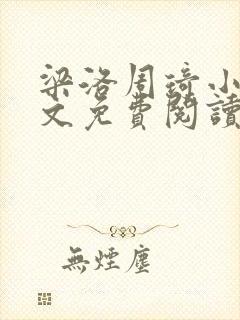 梁洛周琦小
文免費閱讀
無煙塵